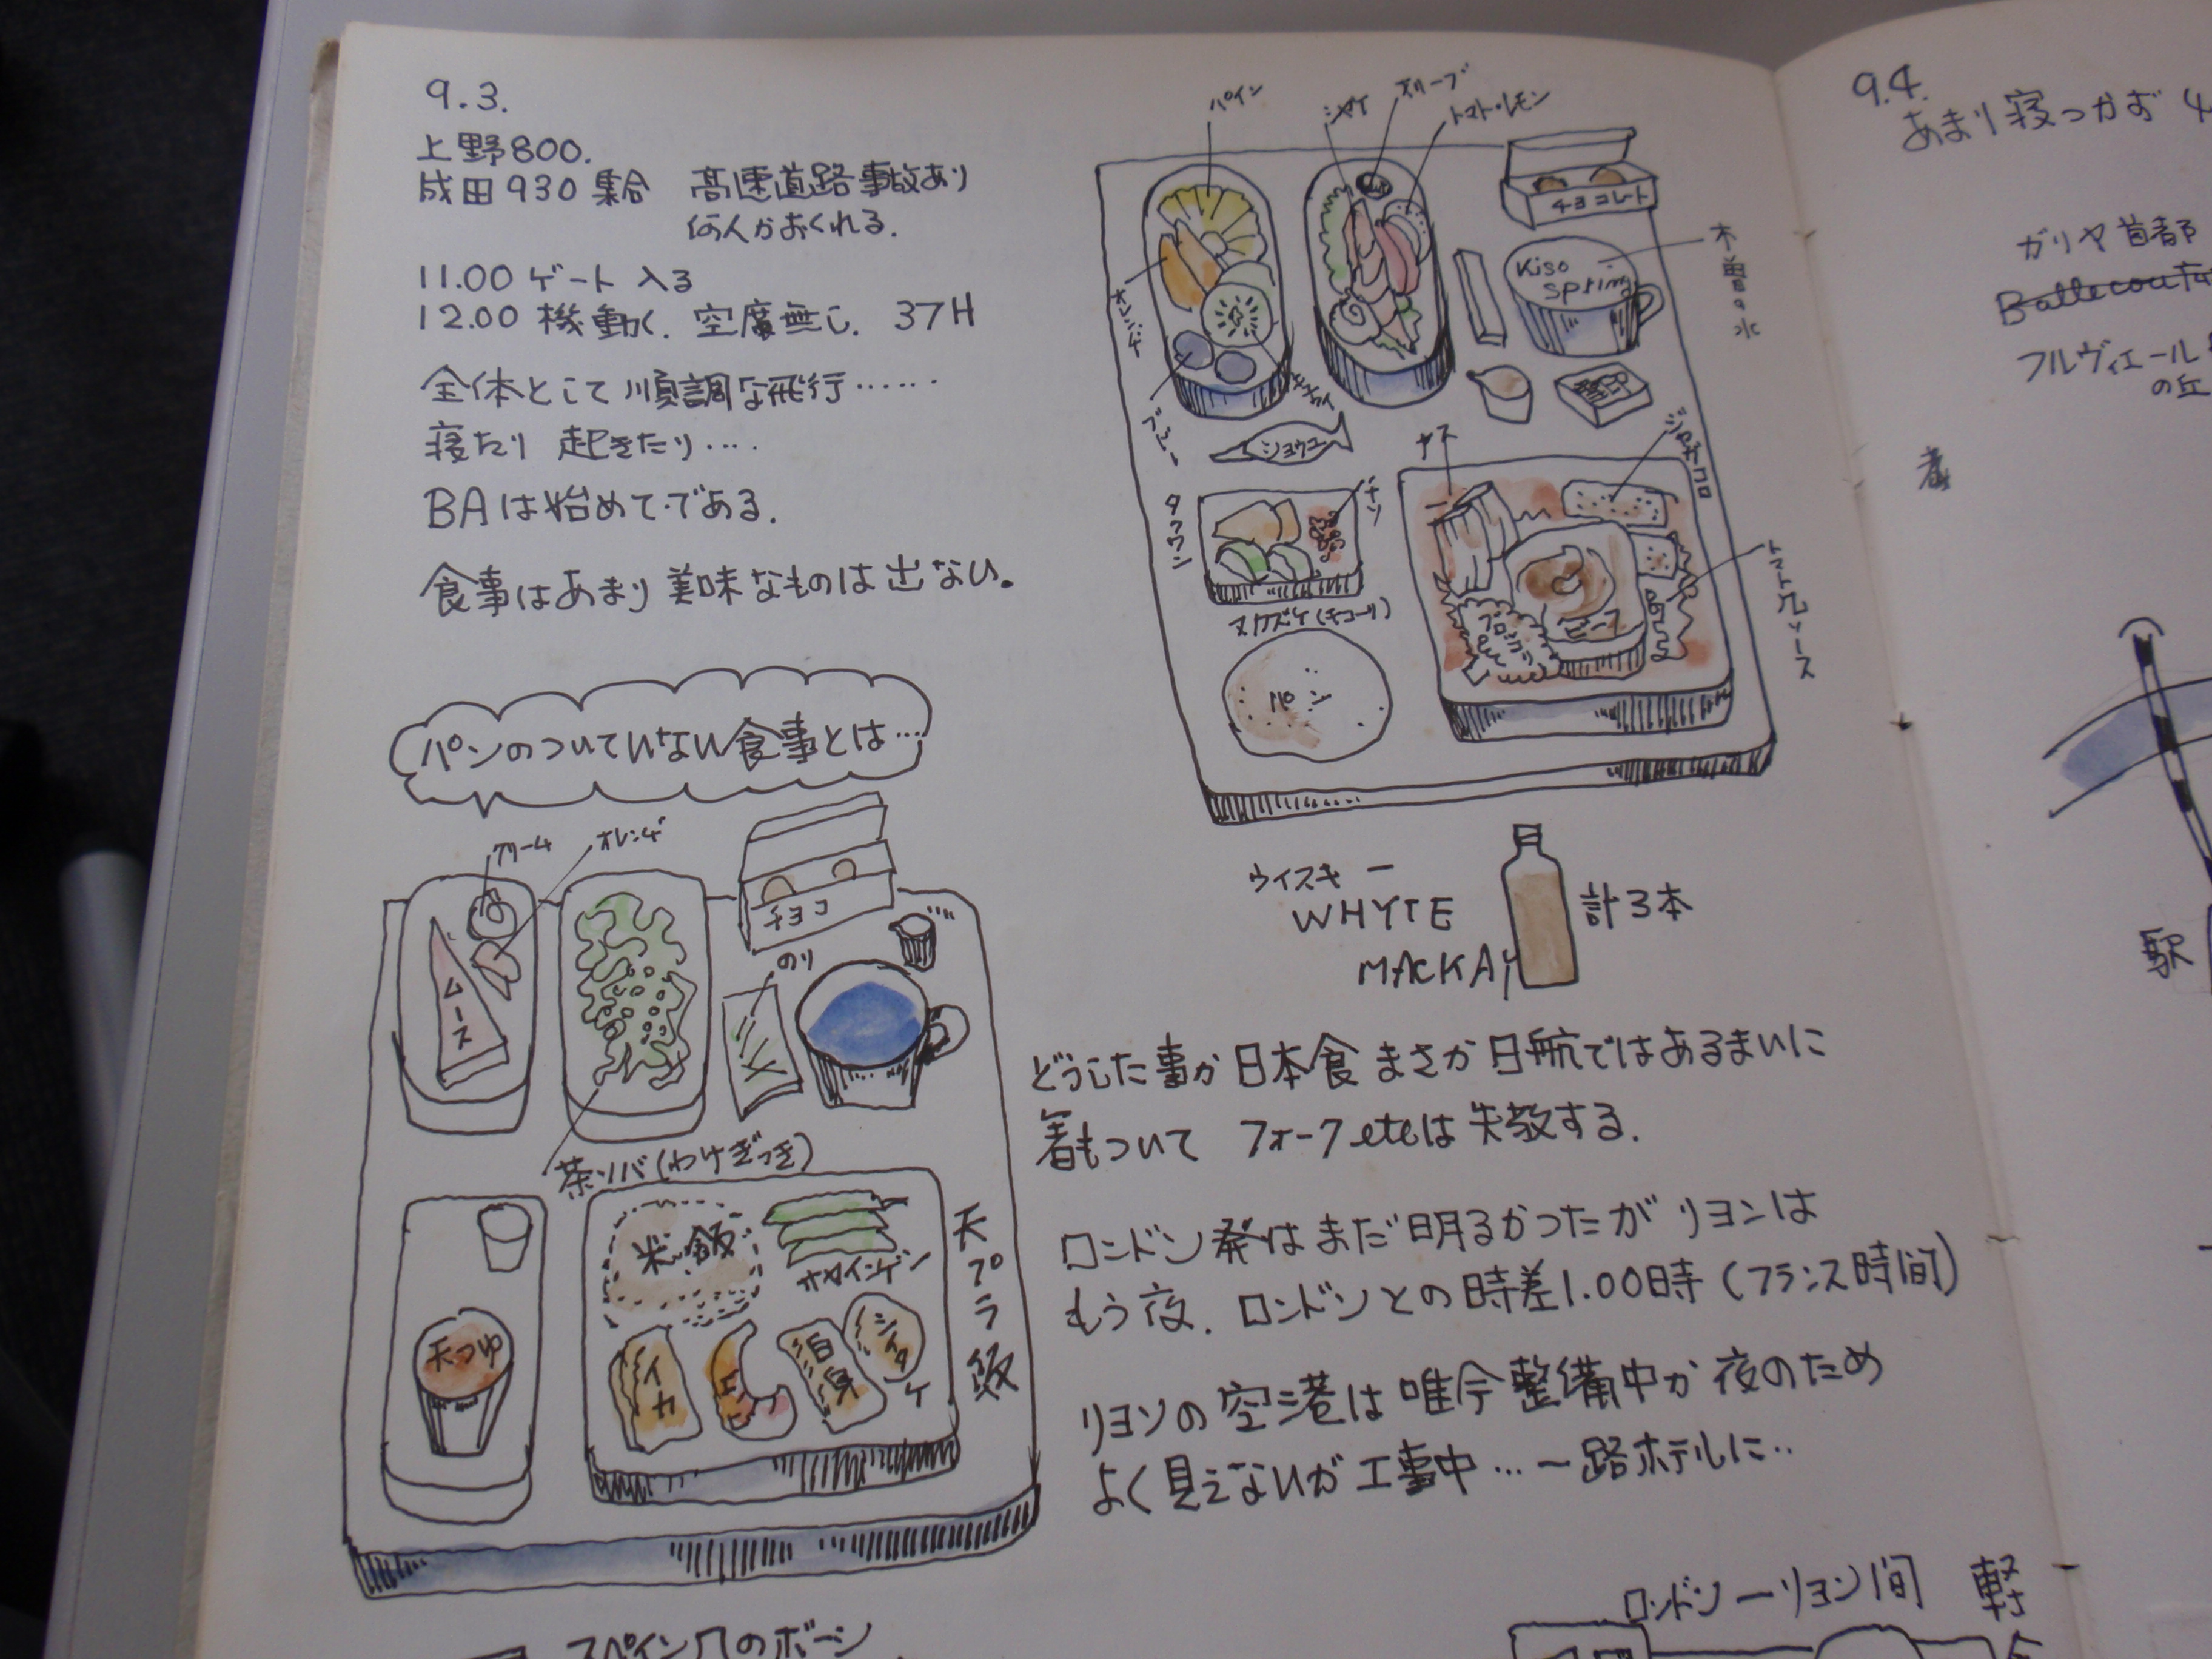 9.3.
上野800.
成田930集合 高速道路事故あり
何人かおくれる.
11.00 ゲート入る
12.00 機動く. 空席無し. 37H
全体として順調な飛行……
寝たり 起きたり‥‥
BAは始めてである.
食事はあまり美味なものは出ない。
パンのついていない食事とは…
クリーム
オレンヂ
ムース
チョコ
のり
茶ソバ(わけぎつき)
米飯
オオインゲン
天つゆ
イカ
エビ
白身
シイタケ
天プラ飯
パイン
シャケ
オリーブ
トマト・レモン
チョコレート
オレンヂ
Kiso
Spring
木曽の水
キウイ
ショウユ
ナス
タクワン
ヌカズケ(キューリ)
パン
ブロッコリー
ビーフ
トマトソース
ウイスキー
WHYTE
MACKAY
計3本
どうした事か日本食 まさか日航ではあるまいに
箸もついて フォークetcは失敬する.
ロンドン発はまだ明るかったが リヨンは
もう夜. ロンドンとの時差1.00時(フランス時間)
リヨンの空港は唯今整備中か夜のため
よく見えないが工事中…一路ホテルに‥
ロンドンーリヨン間 軽
9.4.
あまり寝つかず
ガリヤ首都
フルヴィエール
の丘
駅